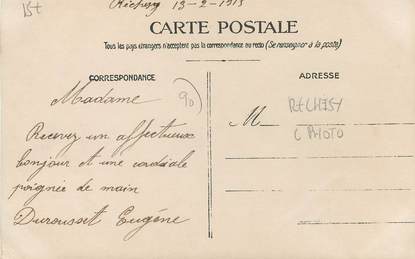 15+ Richesy 13-2-1913
CARTE POSTALE
Tous les pays étrangers n'acceptent pas la correspondance au recto (Se renseigner à la poste)
CORRESPONDANCE
ADRESSE
Madame
90
Recevez un affectueux
bonjour et une cordiale
poignée de main
Durousset Eugéne
M
C PHOTO